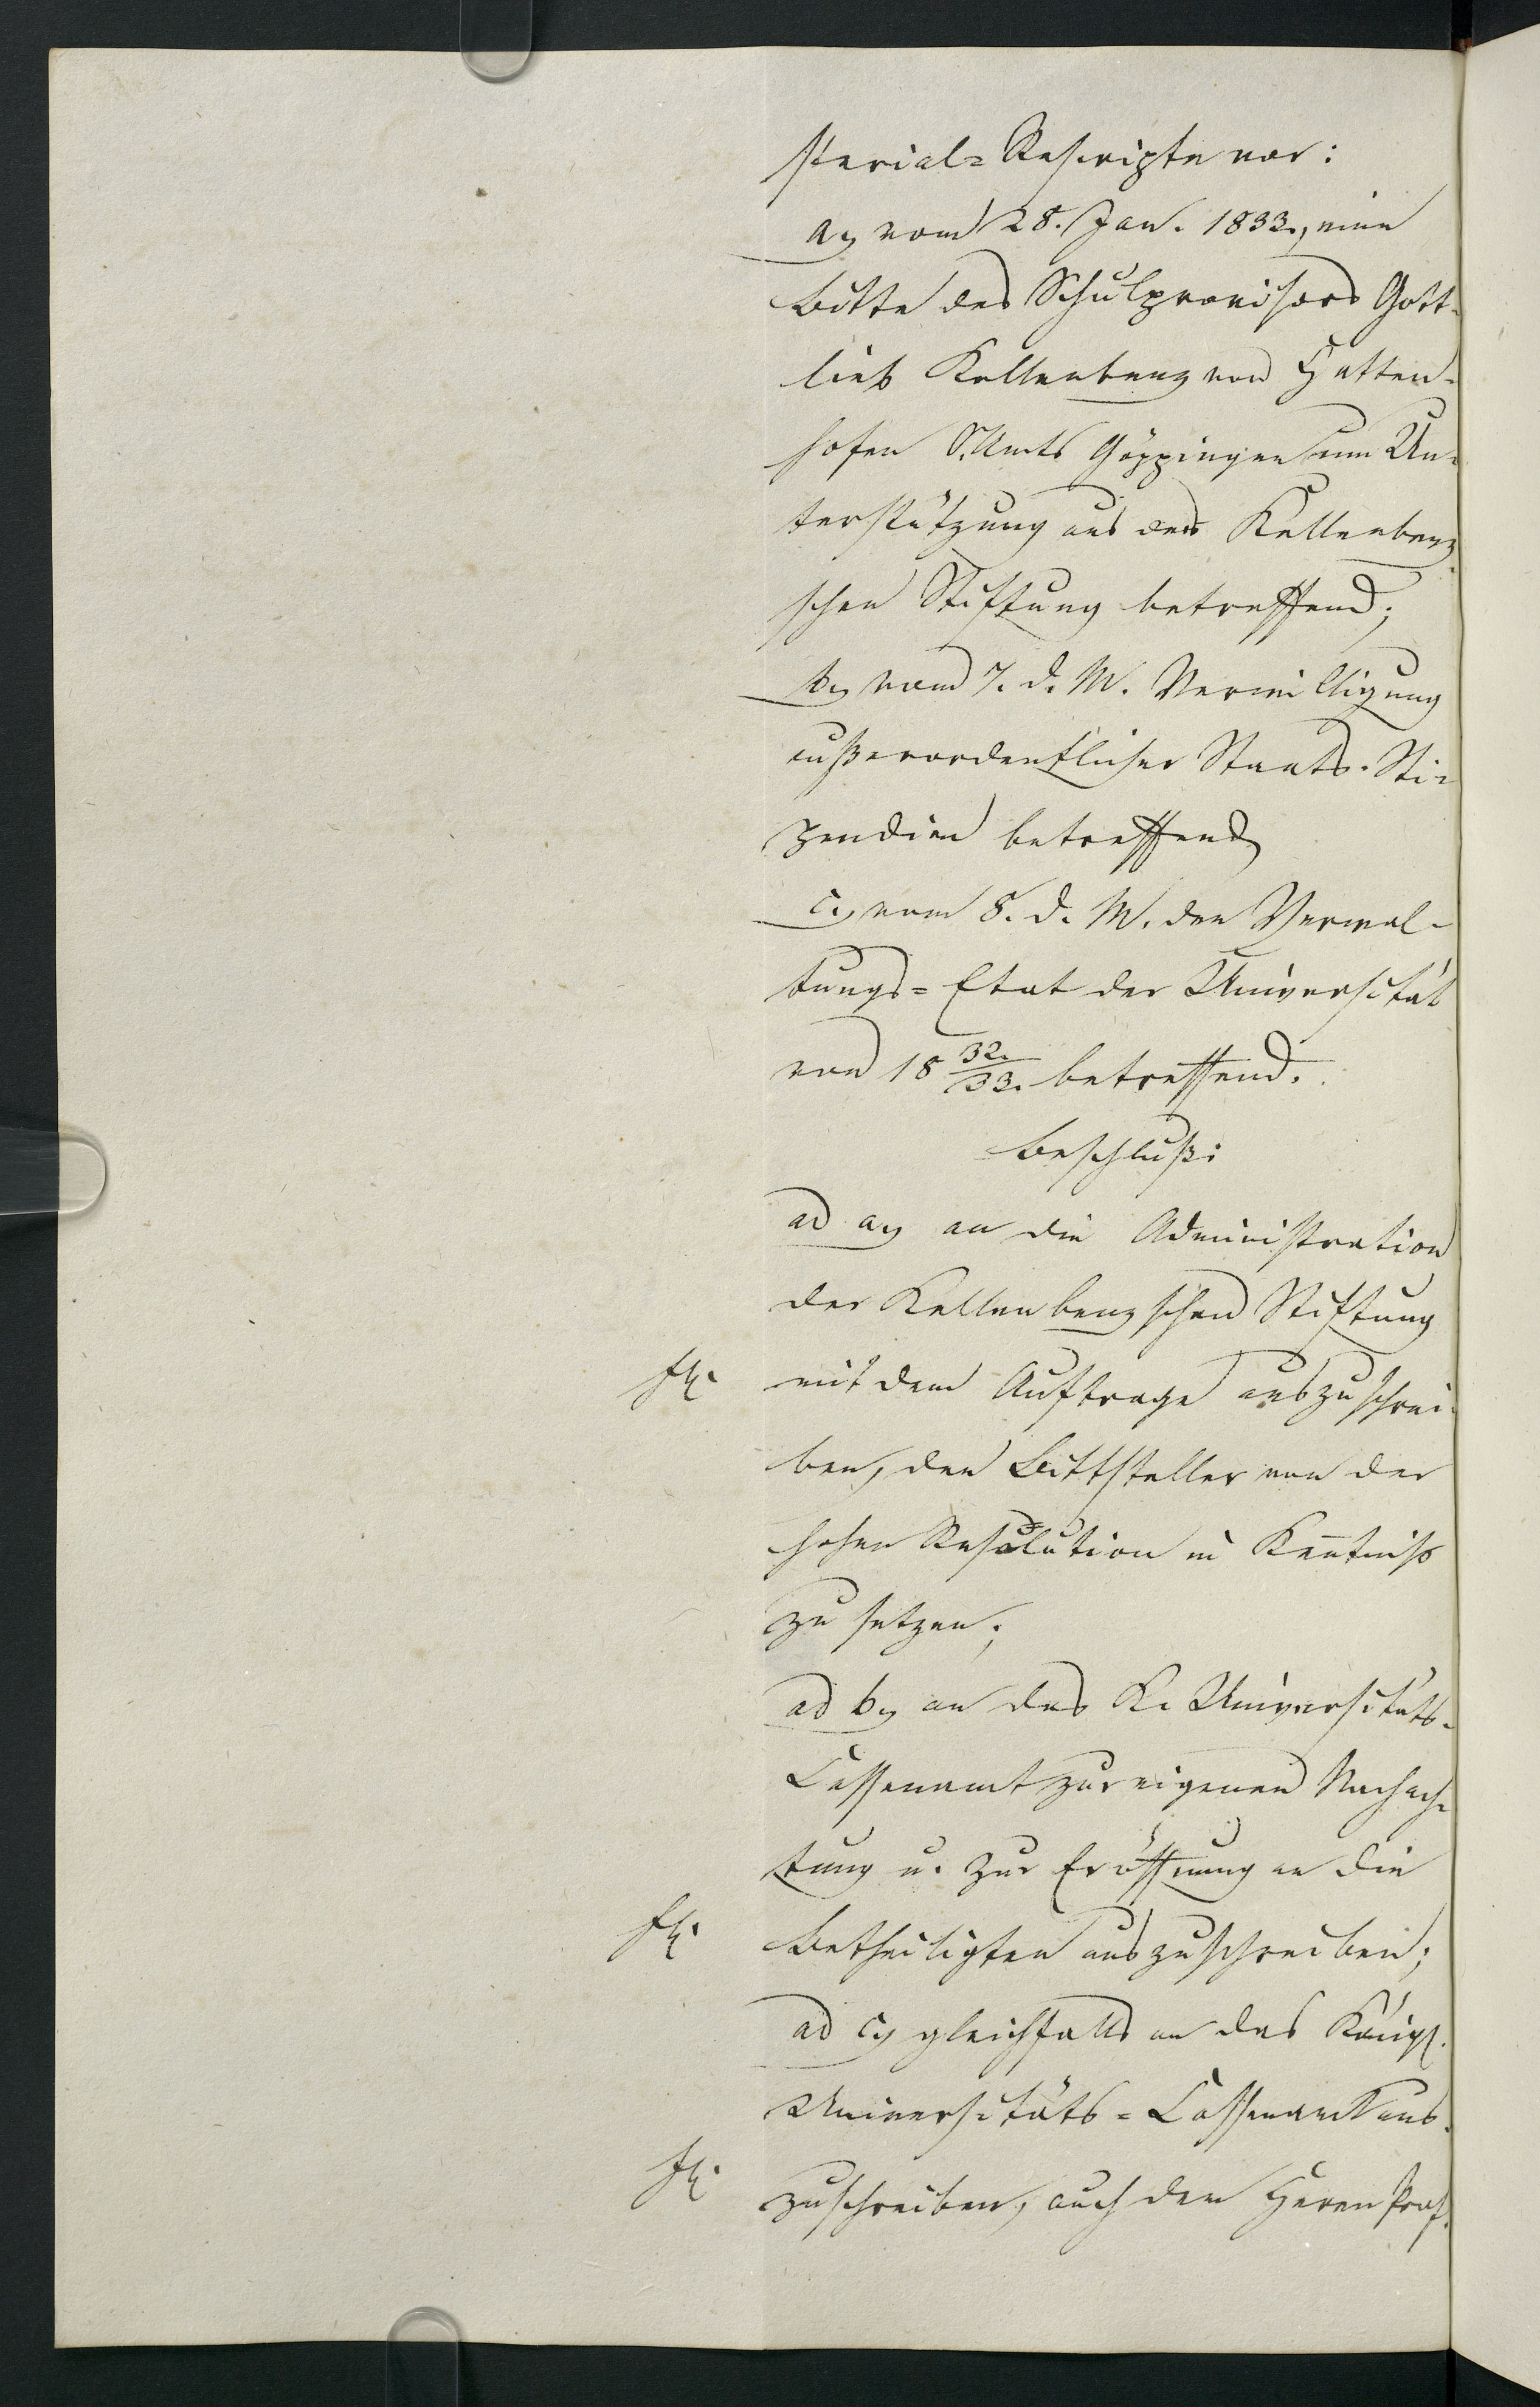 sterial-Rescripte vor:
a, vom 28. Jan. 1833., eine
Bitte des Schulprovisors Gott-
lieb Kallenbenz von Hatten-
hofen O.Amts Göppingen um Un-
terstützung aus der Kallenbenz
schen Stiftung betreffend;
b, vom 7. d. M. Verwilligung
außerordentlicher Staats-Sti-
pendien betreffend
c, vom 8. d. M. den Verwal-
tungs-Etat der Universität
von 18 32./33. betreffend.
Beschluß:
ad a, an die Administration
der Kallenbenzschen Stiftung
mit dem Auftrage auszuschrei-
ben, den Bittsteller von der
hohen Resolution in Kentniß
zu setzen;
ad b, an das K. Universitäts-
Cassenamt zur eigenen Nachach-
tung u. zur Eröffnung an die
Betheiligten auszuschreiben;
ad c, gleichfalls an das Königl.
Universitäts-Cassenamt aus-
zuschreiben, auch dem Herrn Prof.